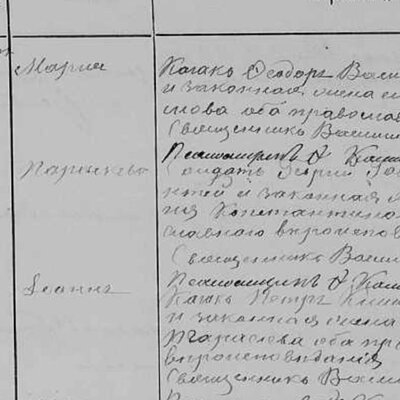 Мария
Казакъ Ѳеодоръ Васи
и законная жена е
нова оба православ
Священникъ Васили
Параскева
Псаломщикъ А
Солдатъ Георгій
тьей и законная
ия Константино
славнаго вѣроиспов
Священникъ Васи
Іоаннъ
Псаломщикъ А
Казакъ Петръ
и законная жена
Тарасова оба пр
вѣроисповѣданія
Священникъ Васи